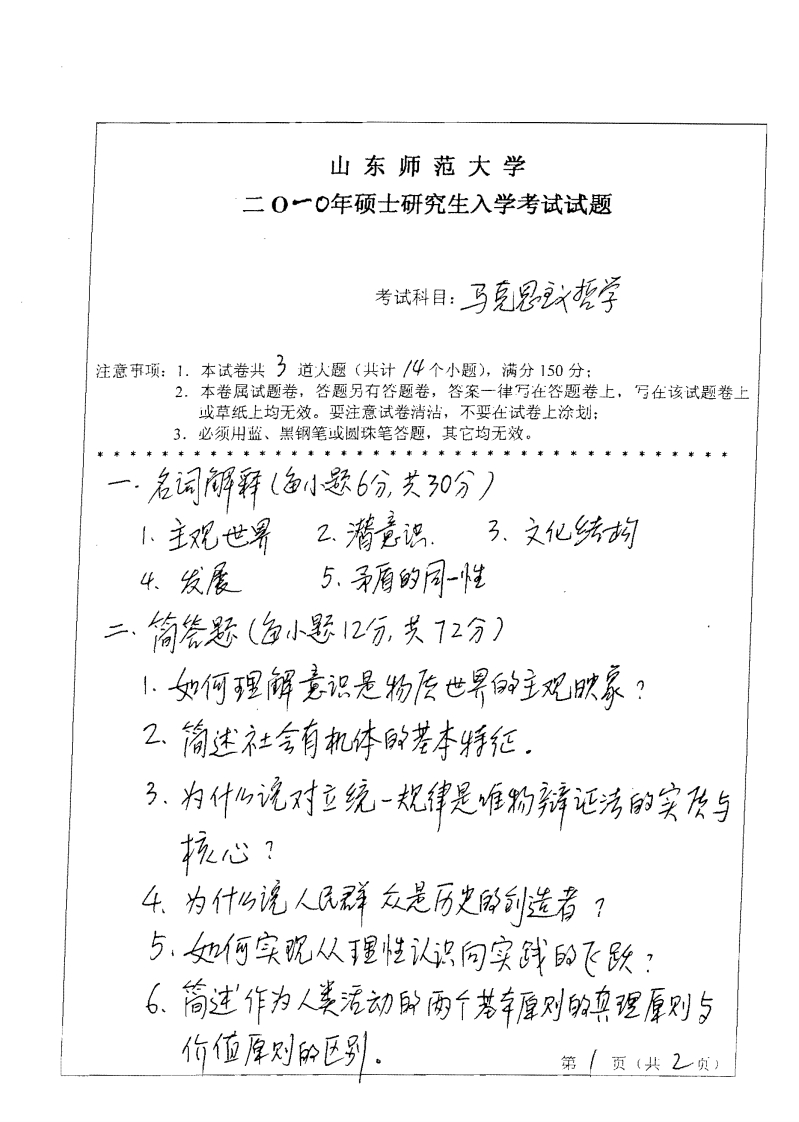 山东师范大学
二O一0年硕士研究生入学考试试题
考试科目：马克思主义哲学
注意事项：1．本试卷共 3 道大题（共计 14 个小题），满分 150 分；
2．本卷属试题卷，答题另有答题卷，答案一律写在答题卷上，写在该试题卷上
或草纸上均无效。要注意试卷清洁，不要在试卷上涂划；
3．必须用蓝、黑钢笔或圆珠笔答题，其它均无效。
* * * * * * * * * * * * * * * * * * * * * * * * * * * * * * * * * * * * * * * *
一．名词解释（每小题6分，共30分）
1．主观世界 2．潜意识． 3．文化结构
4．发展 5．矛盾的同一性
二．简答题（每小题12分，共72分）
1．如何理解意识是物质世界的主观映象？
2．简述社会有机体的基本特征．
3．为什么说对立统一规律是唯物辩证法的实质与
核心？
4．为什么说人民群众是历史的创造者？
5．如何实现从理性认识向实践的飞跃？
6．简述作为人类活动的两个基本原则的真理原则与
价值原则的区别。
第 1 页（共 2 页）